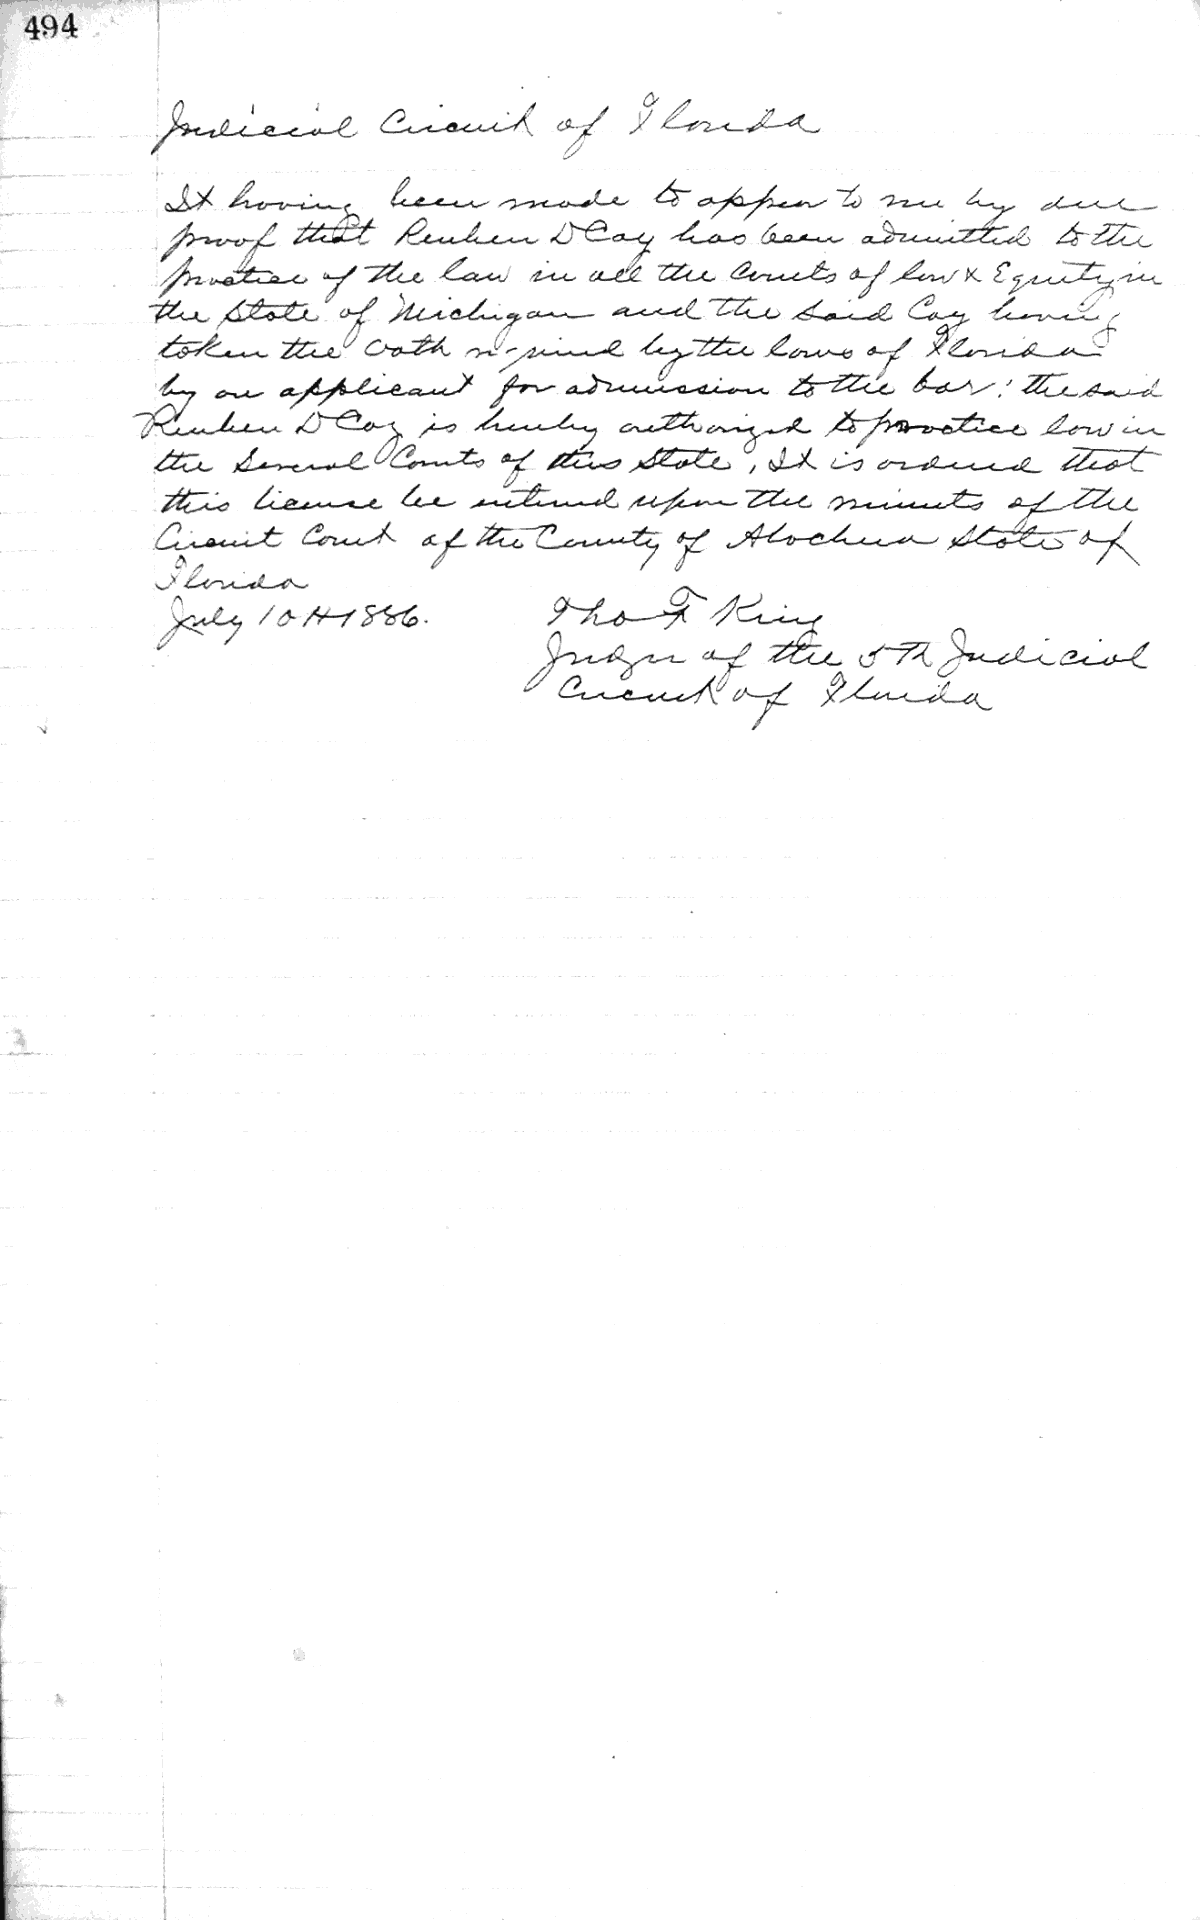 494
Judicial Circuit of Florida
It having been made to appear to me by due
proof that Reuben D Coy has been admitted to the
practice of the law in all the Courts of law & Equity in
the State of Michigan and the said Coy having
taken the Oath required by the laws of Florida
by an applicant for admission to the bar: the said
Reuben D Coy is hereby authorized to practice law in
the Several Courts of this State, It is ordered that
this license be entered upon the minuts of the
Circuit Court of the County of Alachua State of
Florida
July 10th 1886.
Tho F King
Judge of the 5th Judicial
Circuit of Florida